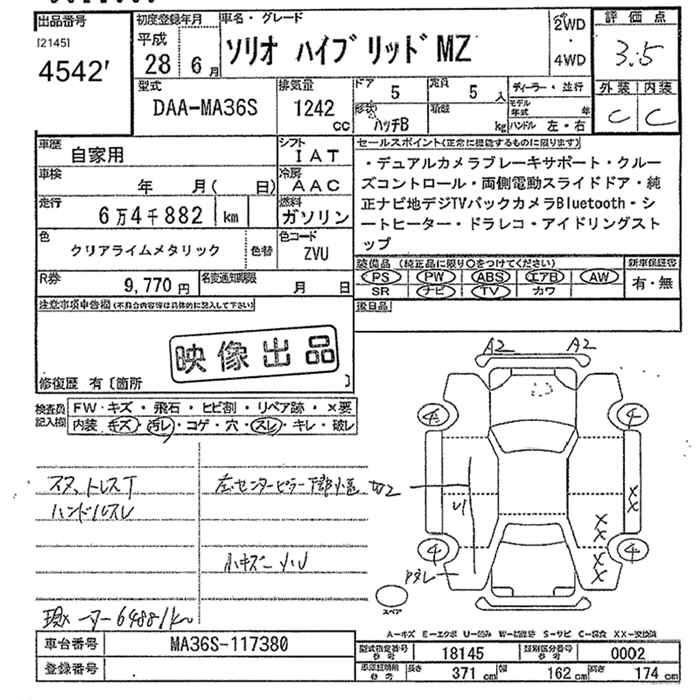 出品番号
[2145]
4542
初度登録年月
平成
28 6月
車名・グレード
ソリオ ハイブリッド MZ
2WD
・
4WD
評価点
3.5
外装 内装
C C
型式
DAA-MA36S
排気量
1242
cc
ドア
5
定員
5 人
形状
ハッチB
積載
kg
ディーラー・並行
モデル年式 年
ハンドル 左・右
車歴
自家用
シフト
IAT
車検
年 月( 日)
冷房
AAC
走行
6万4千882 km
燃料
ガソリン
色
クリアライムメタリック
色替
色コード
ZVU
R券
9,770円
名変通知期限
月 日
セールスポイント(正常に機能するものに限ります)
・デュアルカメラブレーキサポート・クルー
ズコントロール・両側電動スライドドア・純
正ナビ地デジTVバックカメラBluetooth・シ
ートヒーター・ドラレコ・アイドリングスト
ップ
装備品 (純正品に限り○をつけてください)
PS PW ABS エアB AW
SR ナビ TV カワ
新車保証書
有・無
後日品
注意事項申告欄(不具合内容等は具体的に記入して下さい)
映像出品
修復歴 有〔箇所 〕
検査員記入欄
FW・キズ・飛石・ヒビ割・リペア跡・×要
内装 キズ・汚レ・コゲ・穴・スレ・キレ・破レ
ハンドルスレ
小キズ
A2 A2
4 4
U1
4 4
××
××
××
スペア
A-キズ E-エクボ U-凹み W-補修跡 S-サビ C-腐食 XX-交換済
車台番号
MA36S-117380
登録番号
型式指定番号 参考
18145
類別区分番号 参考
0002
車両証明書 参考
長さ 371cm
幅 162cm
高さ 174cm